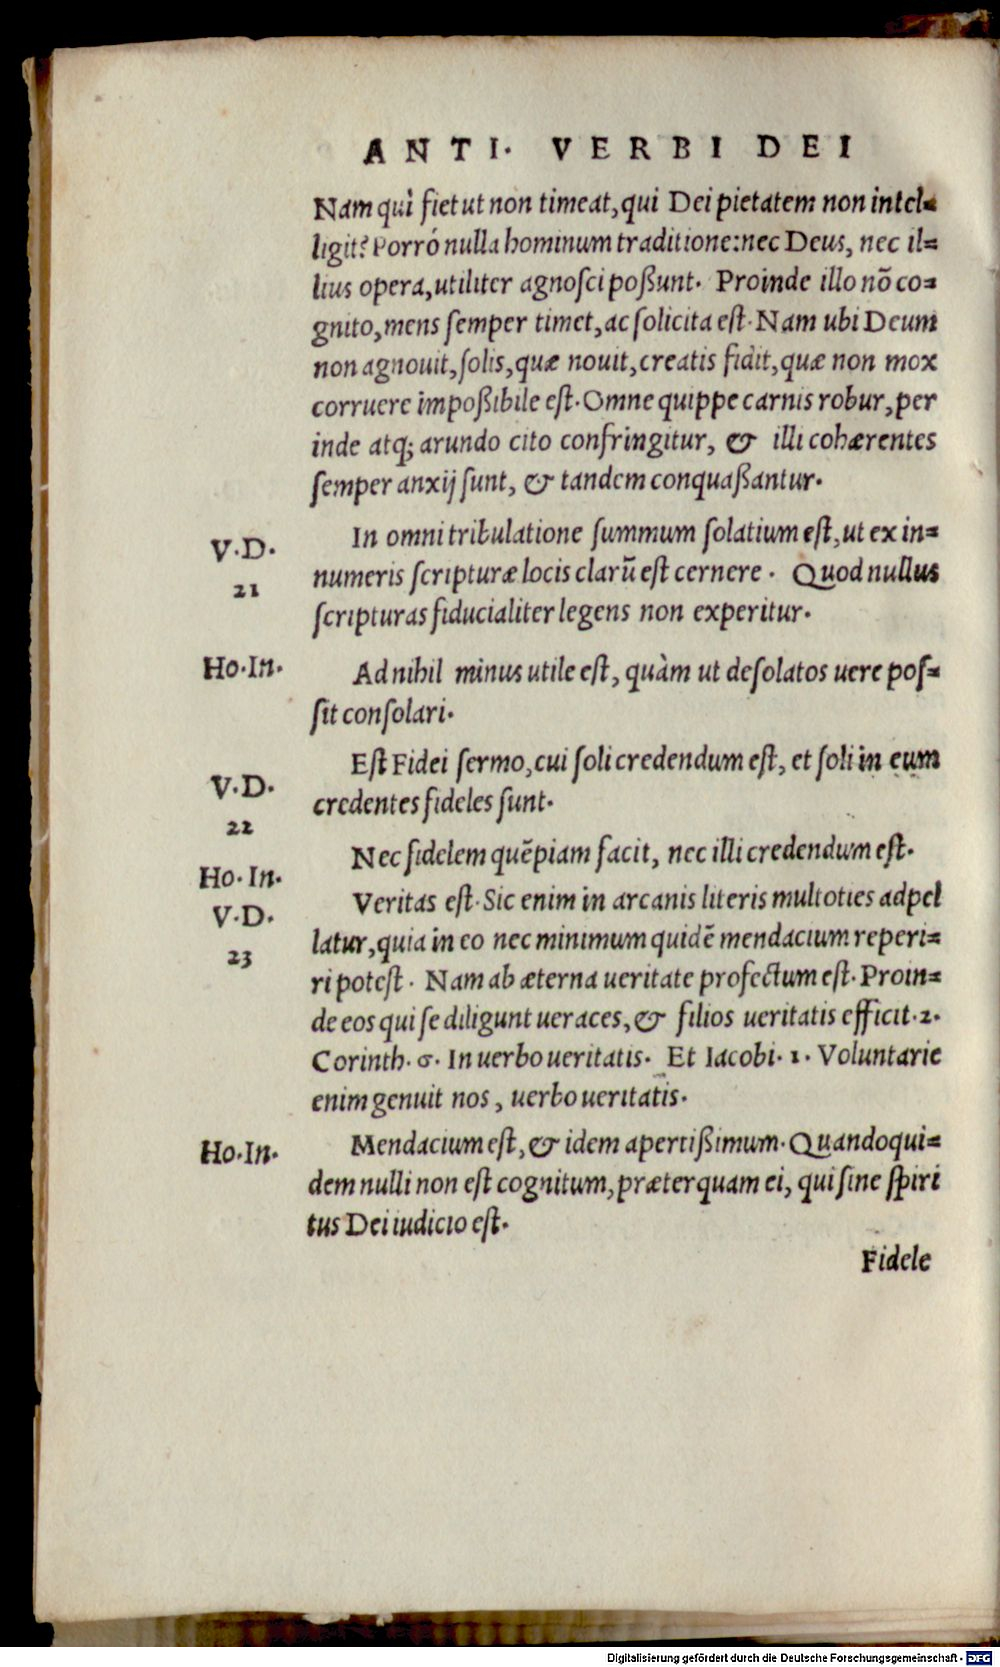 ANTI. VERBI DEI
Nam quî fiet ut non timeat, qui Dei pietatem non intel=
ligit? Porró nulla hominum traditione: nec Deus, nec il=
lius opera, utiliter agnosci poßunt. Proinde illo nō co=
gnito, mens semper timet, ac solicita est. Nam ubi Deum
non agnouit, solis, quæ nouit, creatis fidit, quæ non mox
corruere impoßibile est. Omne quippe carnis robur, per
inde atq; arundo cito confringitur, & illi cohærentes
semper anxij sunt, & tandem conquaßantur.
V.D.
21
In omni tribulatione summum solatium est, ut ex in=
numeris scripturæ locis clarū est cernere. Quod nullus
scripturas fiducialiter legens non experitur.
Ho.In.
Ad nihil minus utile est, quàm ut desolatos uere pos=
sit consolari.
V.D.
22
Est Fidei sermo, cui soli credendum est, et soli in eum
credentes fideles sunt.
Ho.In.
Nec fidelem quēpiam facit, nec illi credendum est.
V.D.
23
Veritas est. Sic enim in arcanis literis multoties adpel
latur, quia in eo nec minimum quidē mendacium reperi=
ri potest. Nam ab æterna ueritate profectum est. Proin=
de eos qui se diligunt ueraces, & filios ueritatis efficit. 2.
Corinth. 6. In uerbo ueritatis. Et Iacobi. 1. Voluntarie
enim genuit nos, uerbo ueritatis.
Ho.In.
Mendacium est, & idem apertißimum. Quandoqui=
dem nulli non est cognitum, præterquam ei, qui sine spiri
tus Dei iudicio est.
Fidele
Digitalisierung gefördert durch die Deutsche Forschungsgemeinschaft - DFG